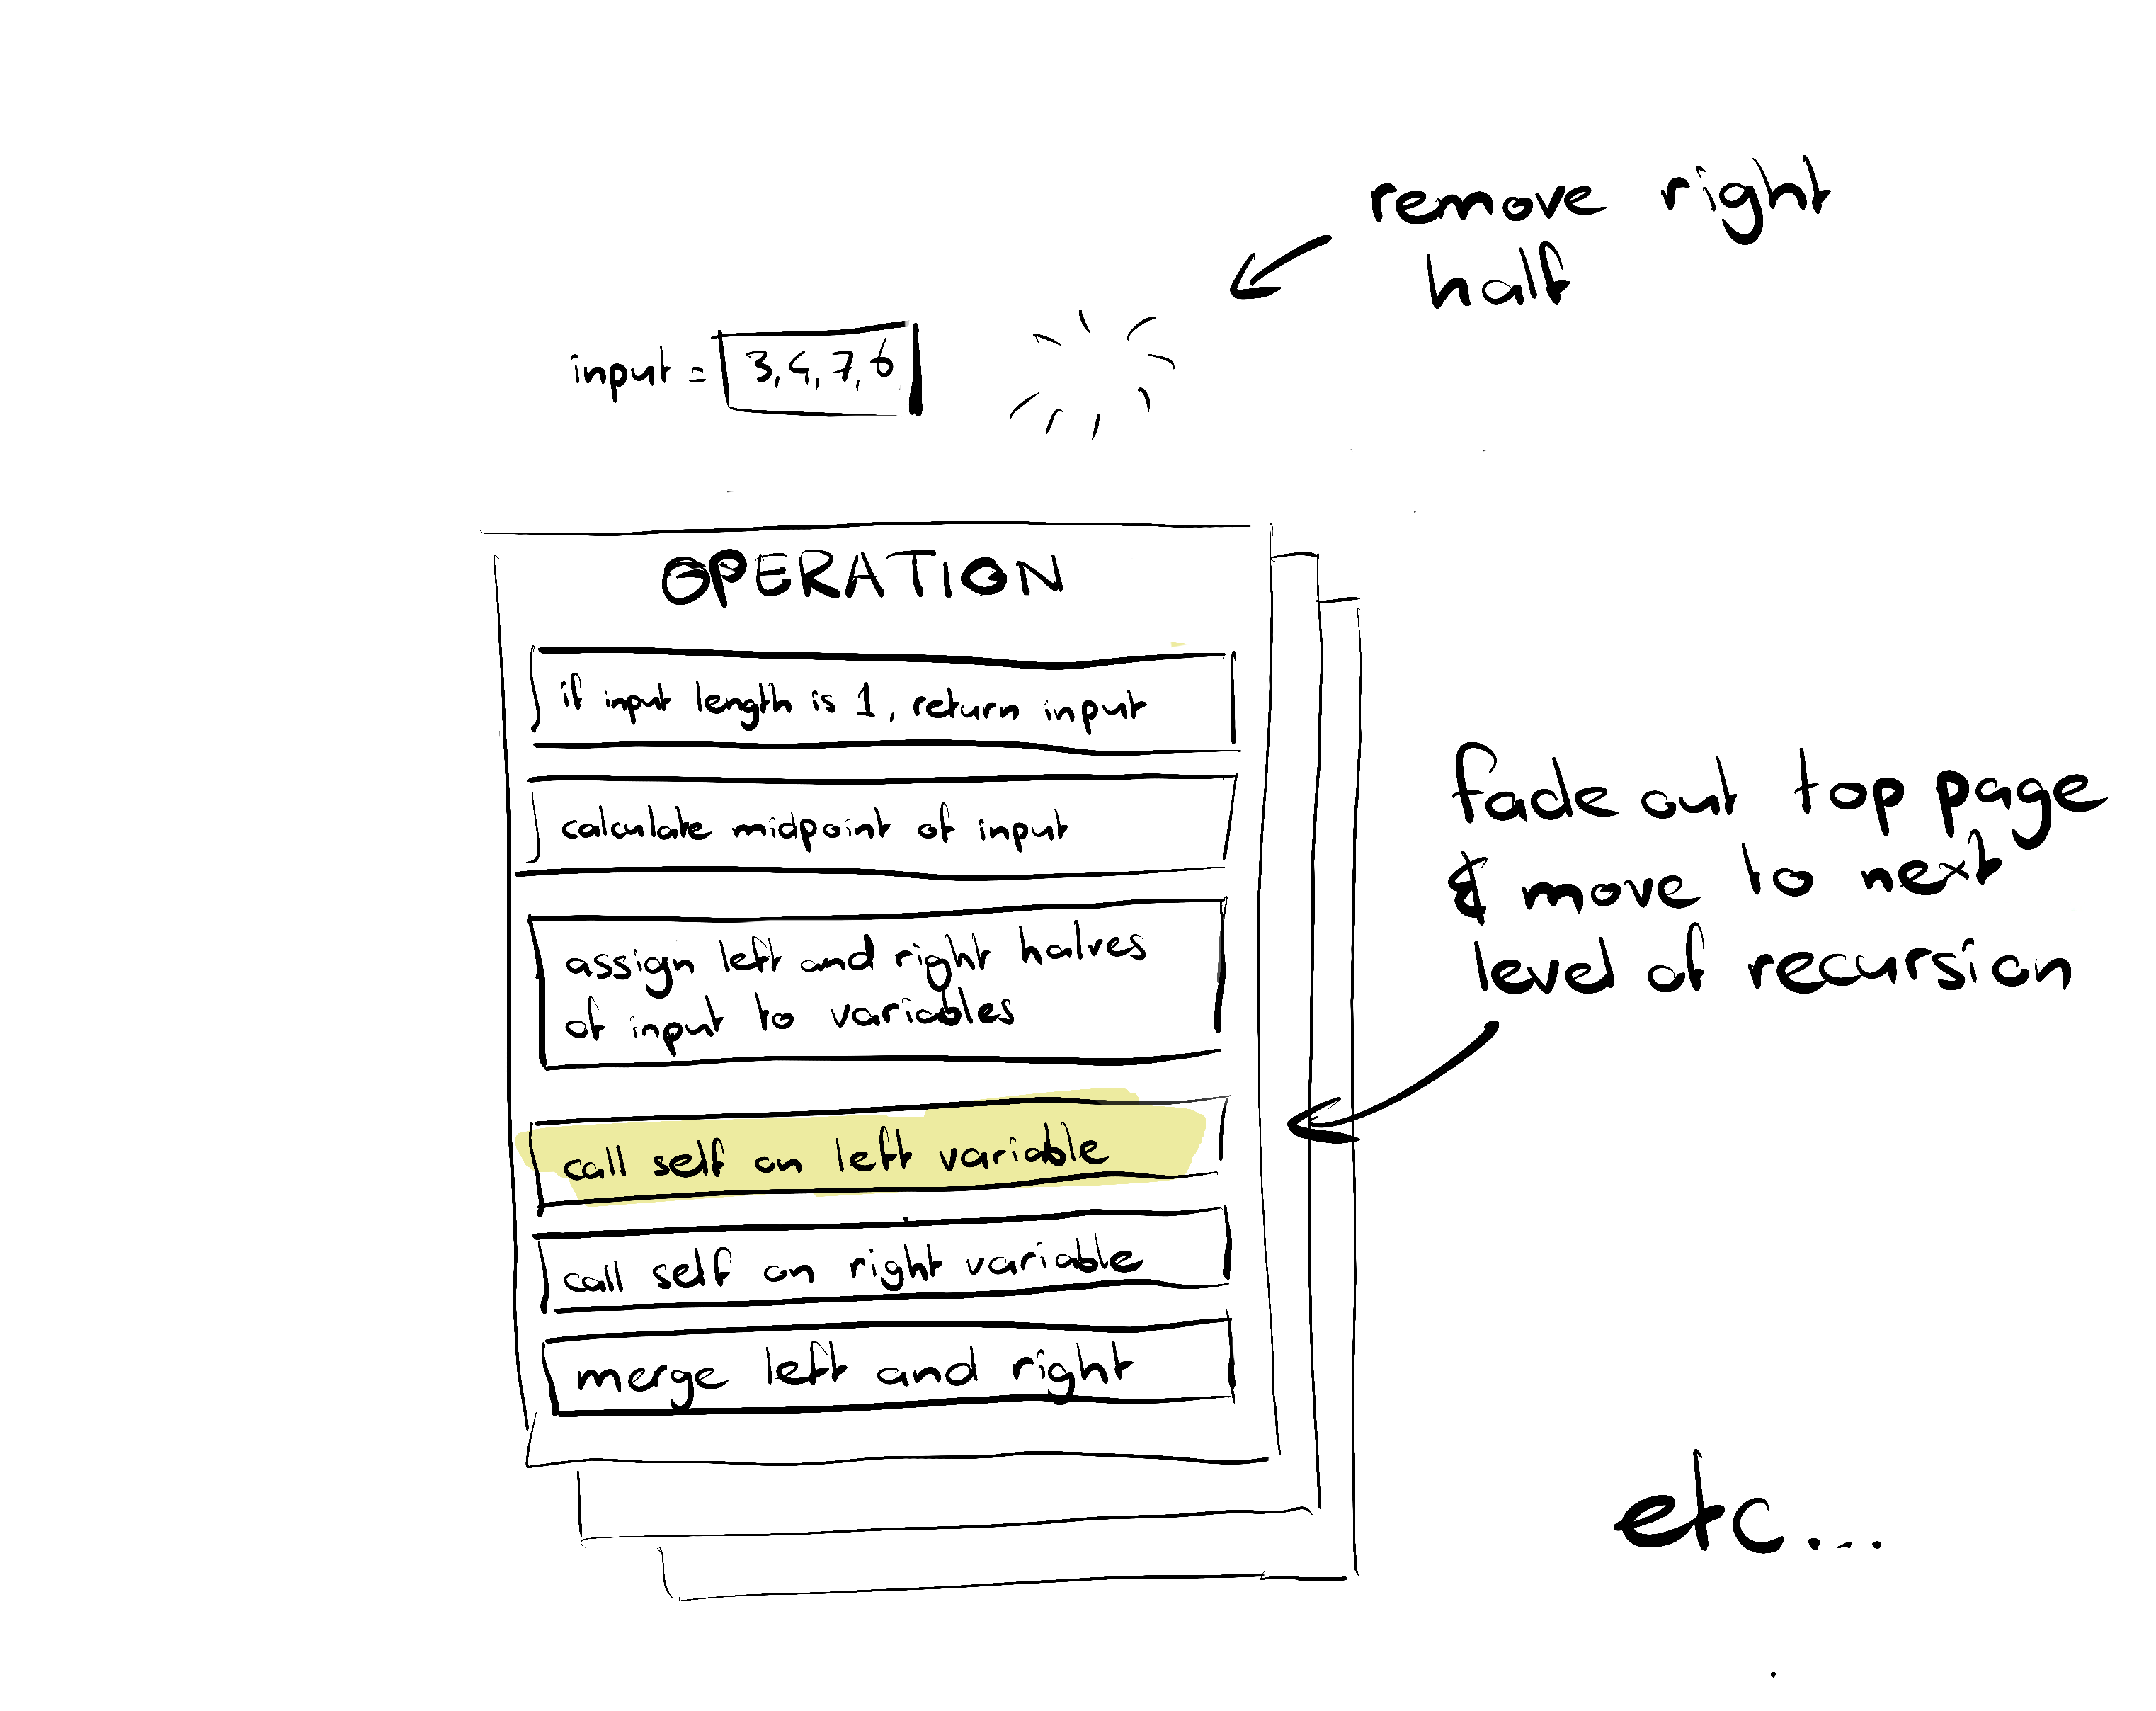 remove right
half
input = 3,4,7,6
OPERATION
if input length is 1, return input
calculate midpoint of input
assign left and right halves
of input to variables
call self on left variable
call self on right variable
merge left and right
fade out top page
& move to next
level of recursion
etc...